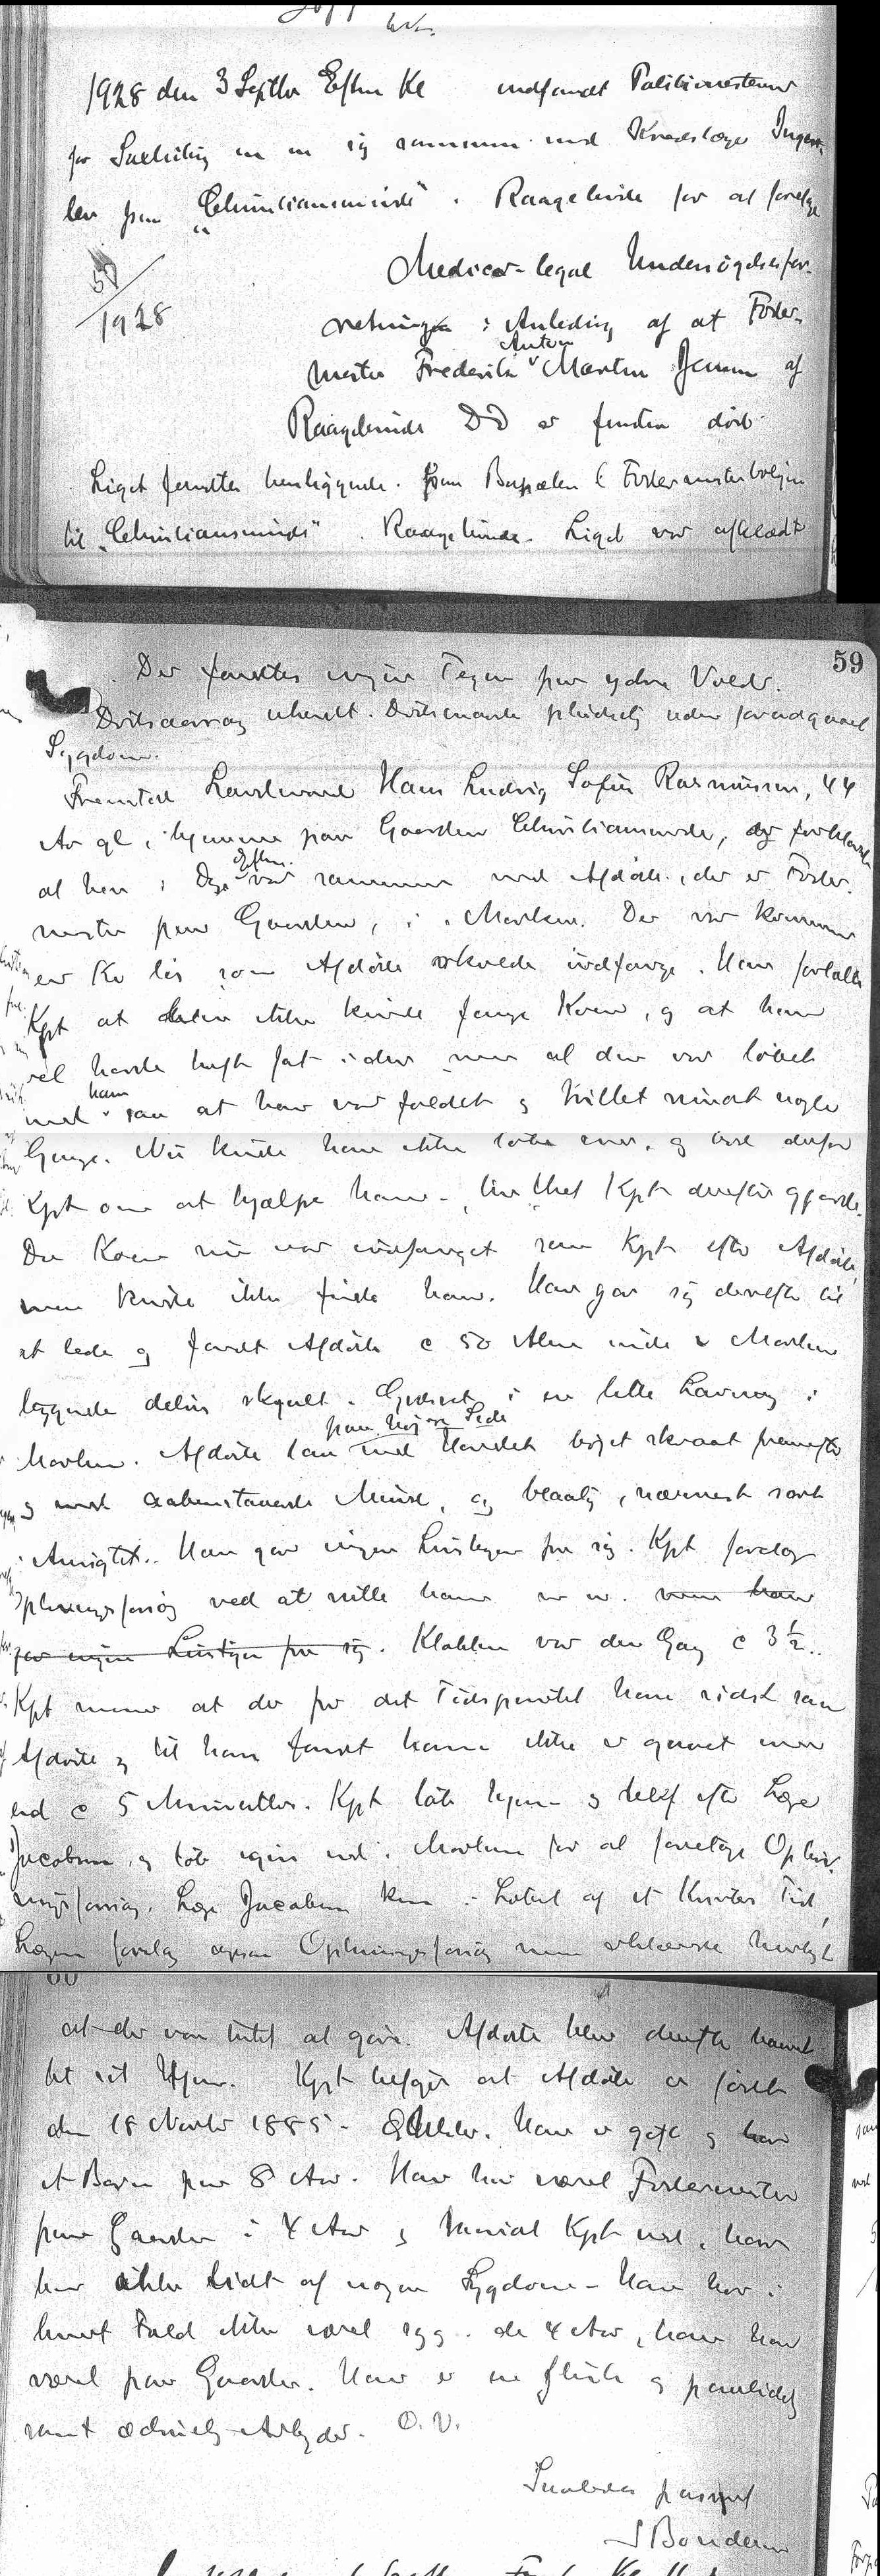 1928 den 3 Septbr Eftm Kl indfandt Politimesteren
for sig sammen med Kredslæge
lev paa "Christiansminde". Raagelunde for at foretage
58/1928
Medico-legal Undersøgelsesfor-
retning i Anledning af at Foder-
mester Frederik Anton Martin Jensen af
Raagelunde DD er funden død.
Liget fandtes henliggende. paa Bopælen (Fodermesterboligen
til "Christiansminde". Raagelunde. Liget var afklædt
59
Der fandtes ingen Tegn paa ydre Vold.
Dødsaarsag ukendt. Døds pludselig uden forudgaaet
Sygdom.
Fremstod Landmand Hans Ludvig Sofus Rasmussen, 44
Aar gl, hjemme paa Gaarden Christiansminde, og forklarede
at han i Dag Eftm. var sammen med Afdøde, der er Foder-
mester paa Gaarden, i Marken. Der var kommen
en Ko løs som Afdøde skulde indfange. Han fortalte
Kpt at han ikke kunde fange Koen, og at han
vel havde haft fat i den men at den var løbet
med ham saa at han var faldet og trillet rundt nogle
Gange. Nu kunde han ikke løbe mer, og bad derfor
Kpt om at hjælpe ham, hvilket Kpt derefter gjorde.
Da Koen nu var indfanget saa Kpt efter Afdøde,
men kunde ikke finde ham. Han gav sig derefter til
at lede og fandt Afdøde c 50 Alen inde i Marken
liggende delvis skjult i Græsset i en lille Lavning i
Marken. Afdøde laa paa højre Side med Hovedet bøjet skraat fremefter
og med aabenstaaende Mund, og blaalig, nærmest sort
i Ansigtet. Han gav ingen Livstegn fra sig. Kpt foretog
Oplivningsforsøg ved at rulle ham m m. men han
gav ingen Livstegn fra sig. Klokken var den Gang c 3½.
Kpt mener at der fra det Tidspunktet han sidst saa
Afdøde og til han fandt ham ikke er gaaet mer
end c 5 Minutter. Kpt løb hjem og telef efter Læge
Jacobsen og løb igen ud i Marken for at foretage Opliv-
ningsforsøg. Læge Jacobsen kom i Løbet af et Kvarters Tid,
Lægen foretog ogsaa Oplivningsforsøg men erklærede hurtigt
60
at der var intet at gøre. Afdøde blev derefter bragt
til sit Hjem. Kpt tilføjer at Afdøde er født
den 18 Novbr 1885 i. Han er gift og har
et Barn paa 8 Aar. Han har været Fodermester
paa Gaarden i 4 Aar og saavidt Kpt ved, har han
ikke lidt af nogen Sygdom. Han har i
hvert Fald ikke været syg i de 4 Aar, han har
været paa Gaarden. Han er en flink og paalidelig
samt ædruelig Arbejder. O. V.
Saaledes passeret
Bondesen